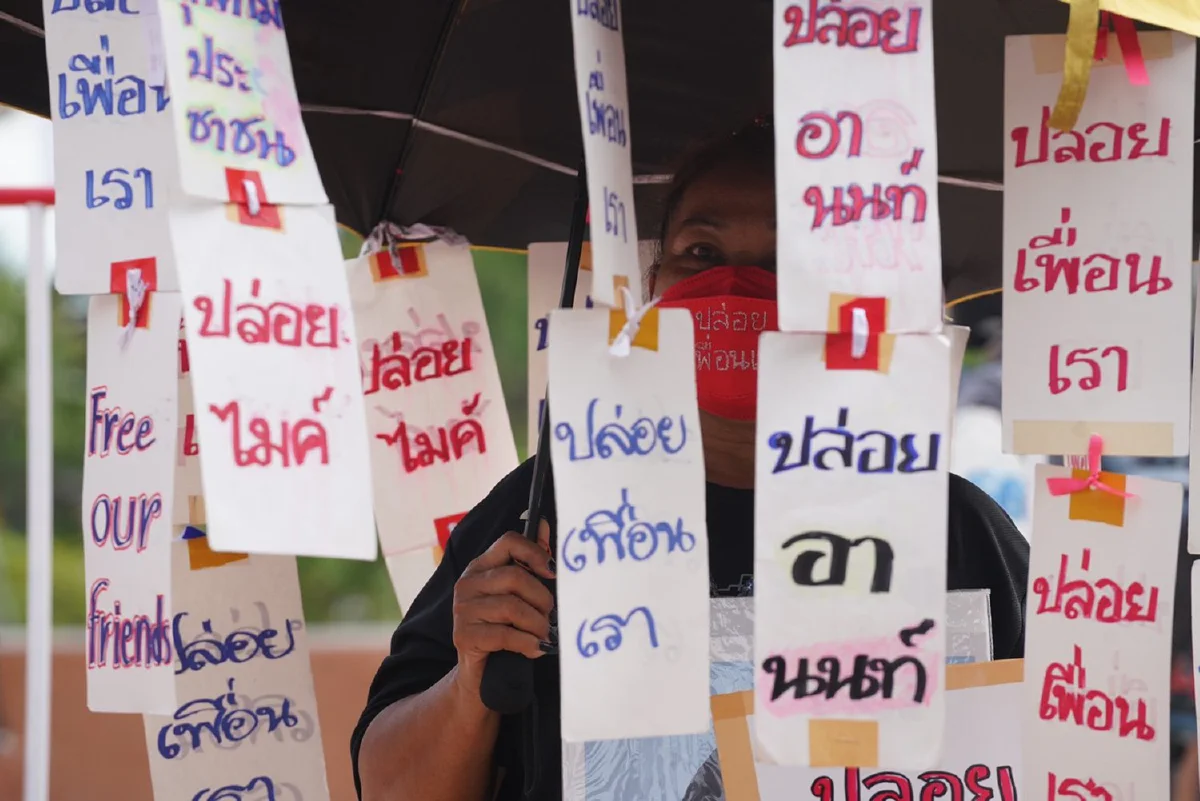 เพื่อน
เรา
ประ
ชาชน
ปล่อย
ไมค์
Free
our
friends
ปล่อย
เพื่อน
เรา
ปล่อย
ไมค์
เพื่อน
เรา
ปล่อย
เพื่อน
เรา
ปล่อย
ปล่อย
อา
นนท์
ปล่อย
อา
นนท์
ปล่อย
ปล่อย
เพื่อน
เรา
ปล่อย
เพื่อน
เรา